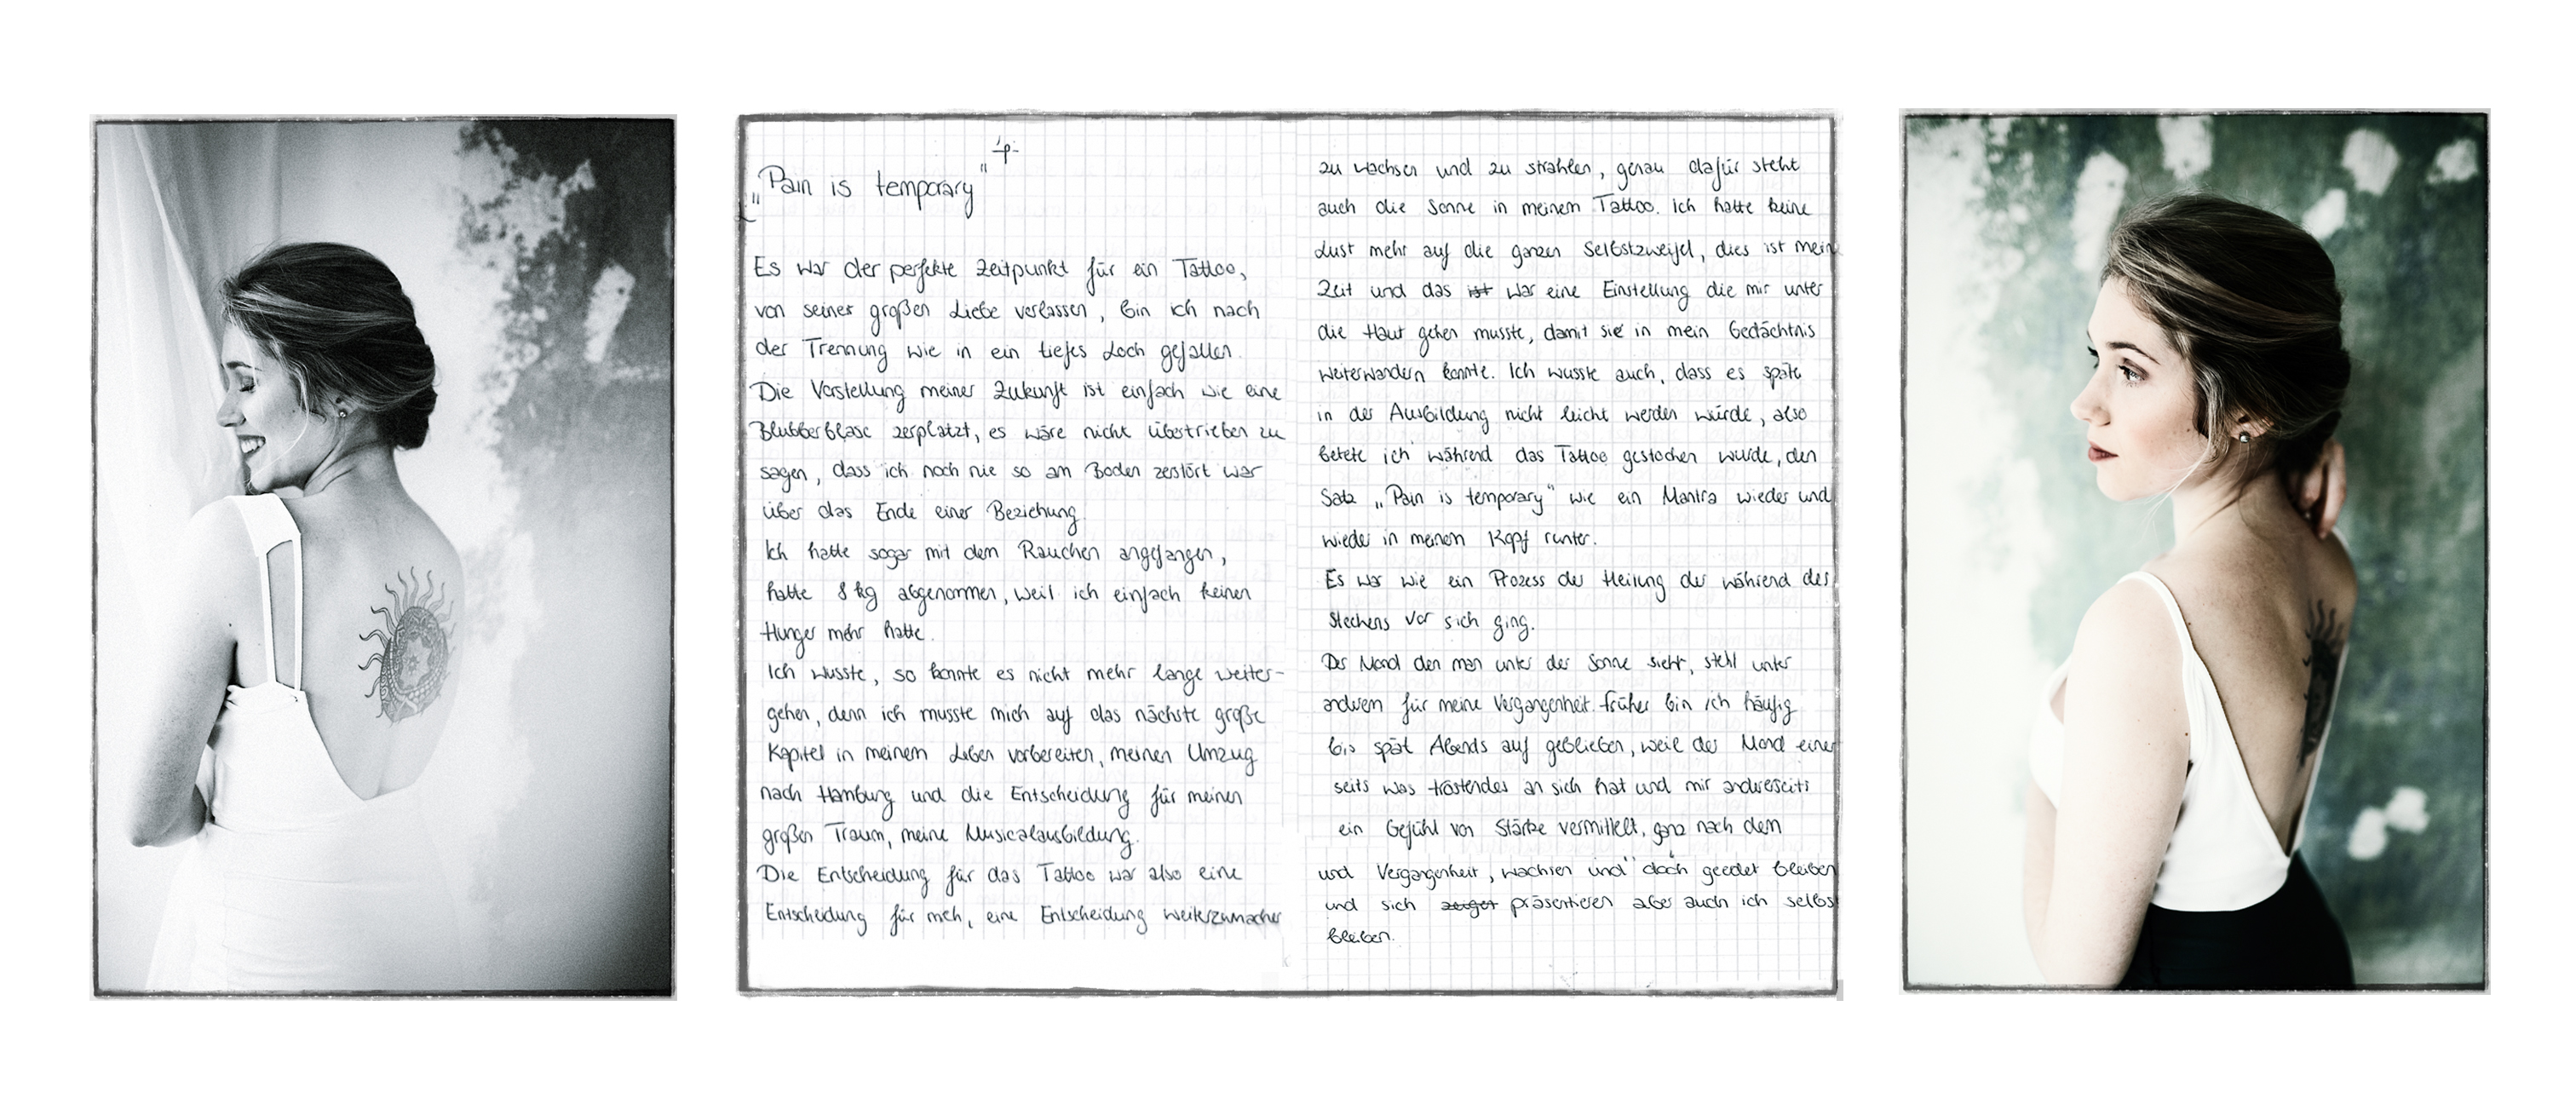 „Pain is temporary"
Es war der perfekte Zeitpunkt für ein Tattoo,
von seiner großen Liebe verlassen, bin ich nach
der Trennung wie in ein tiefes Loch gefallen.
Die Vorstellung meiner Zukunft ist einfach wie eine
Blubberblase zerplatzt, es wäre nicht übertrieben zu
sagen, dass ich noch nie so am Boden zerstört war
über das Ende einer Beziehung.
Ich hatte sogar mit dem Rauchen angefangen,
hatte 8 kg abgenommen, weil ich einfach keinen
Hunger mehr hatte.
Ich wusste, so konnte es nicht mehr lange weiter-
gehen, denn ich musste mich auf das nächste große
Kapitel in meinem Leben vorbereiten, meinen Umzug
nach Hamburg und die Entscheidung für meinen
großen Traum, meine Musicalausbildung.
Die Entscheidung für das Tattoo war also eine
Entscheidung für mich, eine Entscheidung weiterzumachen
zu wachsen und zu strahlen, genau dafür steht
auch die Sonne in meinem Tattoo. Ich hatte keine
Lust mehr auf die ganzen Selbstzweifel, dies ist mein
Zeit und das ist war eine Einstellung die mir unter
die Haut gehen musste, damit sie in mein Gedächtnis
weiterwandern konnte. Ich wusste auch, dass es später
in der Ausbildung nicht leicht werden würde, also
betete ich während das Tattoo gestochen wurde, den
Satz „Pain is temporary" wie ein Mantra wieder und
wieder in meinen Kopf runter.
Es war wie ein Prozess der Heilung der während des
Stechens vor sich ging.
Der Mond den man unter der Sonne sieht, steht unter
anderem für meine Vergangenheit. Früher bin ich häufig
bis spät Abends auf geblieben, weil der Mond einer
seits was tröstendes an sich hat und mir andererseits
ein Gefühl von Stärke vermittelt, ganz nach dem
und Vergangenheit, wachsen und doch geerdet bleiben
und sich zeigen präsentieren aber auch ich selbst
bleiben.